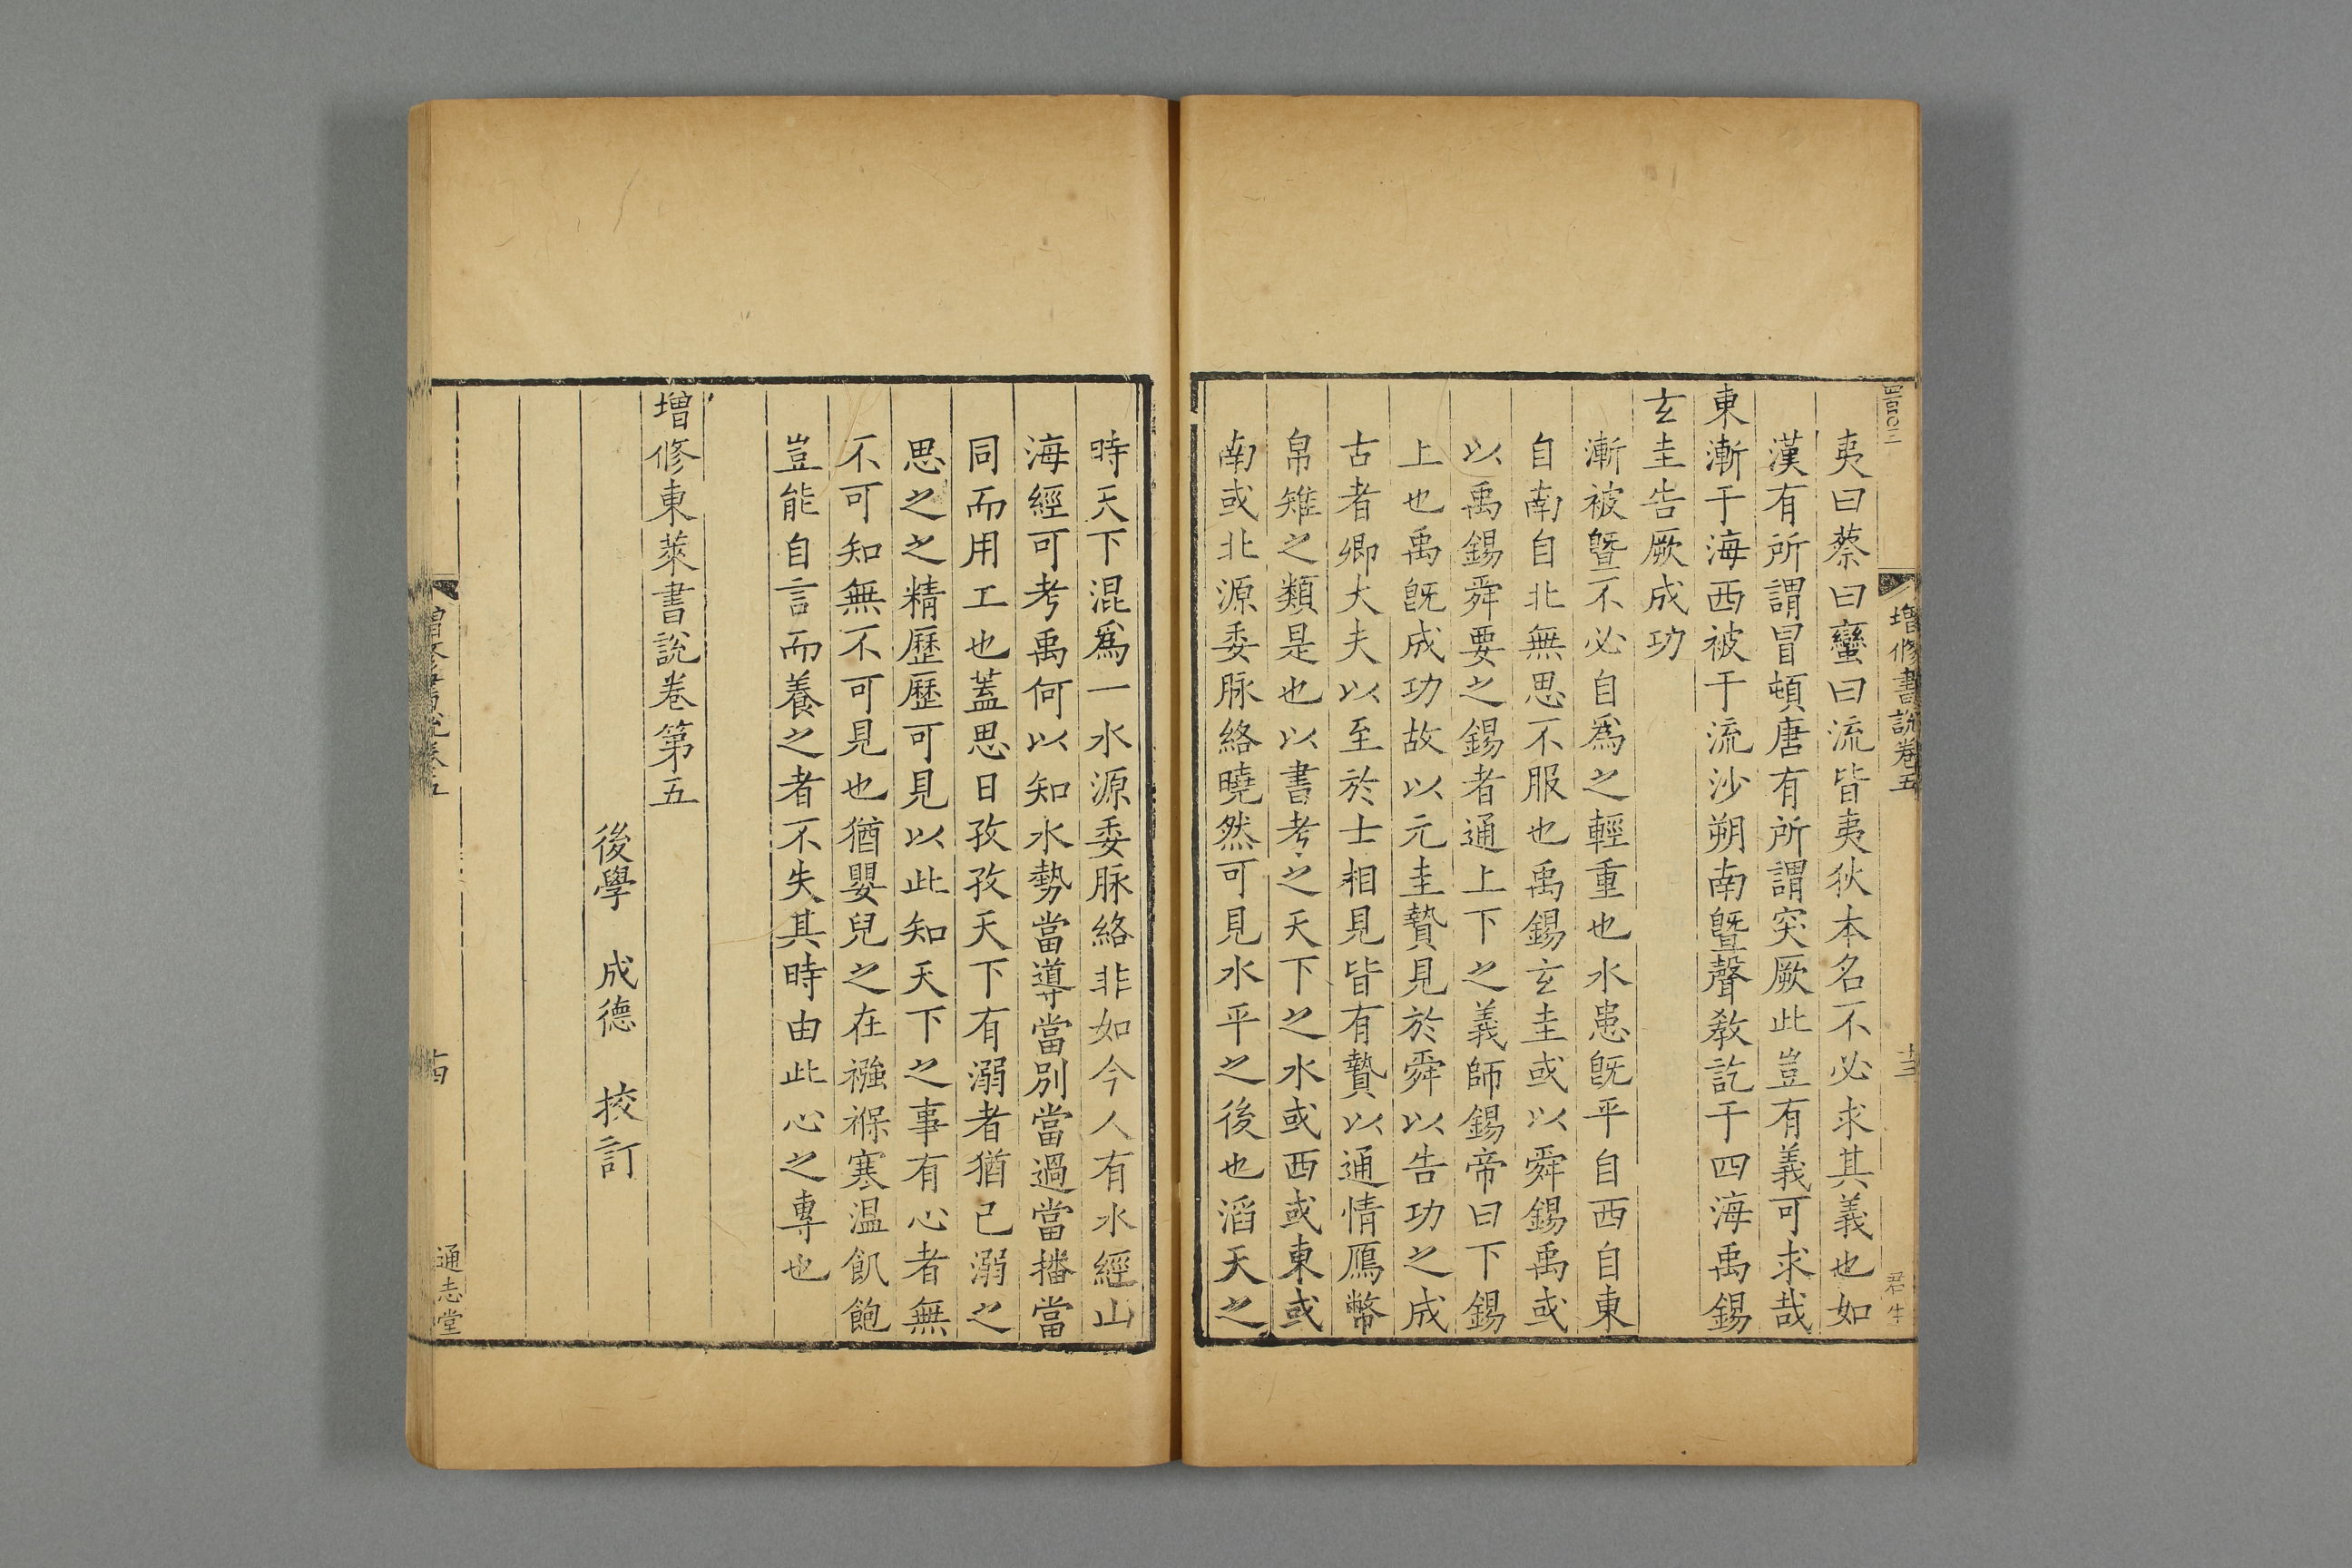 增修書說卷五
十三
君生
夷曰蔡曰蠻曰流皆夷狄本名不必求其義也如
漢有所謂冒頓唐有所謂突厥此豈有義可求哉
東漸于海西被于流沙朔南曁聲敎訖于四海禹錫
玄圭告厥成功
漸被曁不必自爲之輕重也水患旣平自西自東
自南自北無思不服也禹錫玄圭或以舜錫禹或
以禹錫舜要之錫者通上下之義師錫帝曰下錫
上也禹旣成功故以元圭贄見於舜以告功之成
古者卿大夫以至於士相見皆有贄以通情鴈幣
帛雉之類是也以書考之天下之水或西或東或
南或北源委脉絡曉然可見水平之後也滔天之
時天下混爲一水源委脉絡非如今人有水經山
海經可考禹何以知水勢當導當別當過當播當
同而用工也蓋思日孜孜天下有溺者猶己溺之
思之之精歷歷可見以此知天下之事有心者無
不可知無不可見也猶嬰兒之在襁褓寒温飢飽
豈能自言而養之者不失其時由此心之專也
增修東萊書說卷第五
後學 成德 挍訂
通志堂